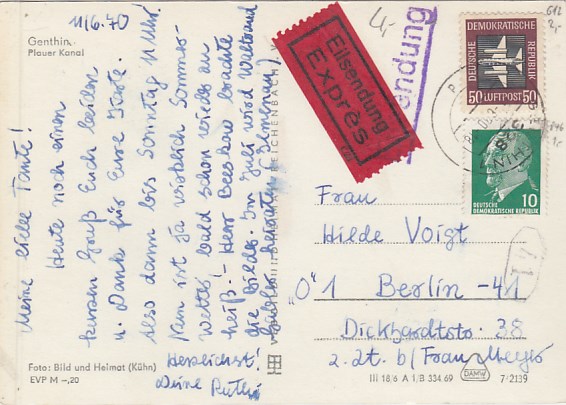 11/6.70
Genthin,
Plauer Kanal
Meine liebe Tante!
Heute noch einen
kurzen Gruß Euch beiden
u. Dank für Eure Karte.
Also dann bis Sonntag 11 Uhr!
Nun ist ja wirklich Sommer-
Wetter, bald schon wieder zu
heiß! - Herr Beeskow brachte
die Bilder. Im Juli wird Waltraud
Herzlichst!
Deine Ruth
Foto: Bild und Heimat (Kühn)
EVP M -,20
REICHENBACH I. V.
Eilsendung
Exprès
endung
4,-
612
2,-
DEUTSCHE
DEMOKRATISCHE
REPUBLIK
50 LUFTPOST 50
10
DEUTSCHE
DEMOKRATISCHE REPUBLIK
Frau
Hilde Voigt
"O" 1 Berlin - 41
Dickhardtstr. 38
z. Zt. b/ Franz Meyer
41
III 18/6 A 1/B 334.69
DAMW
7-2139